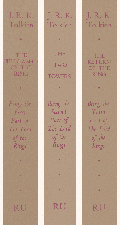 J. R. R.
Tolkien
THE
FELLOWSHIP
OF THE
RING
Being the
First
Part of
The Lord
of the
Rings
RU
J. R. R.
Tolkien
THE
TWO
TOWERS
Being the
Second
Part of
The Lord
of the
Rings
RU
J. R. R.
Tolkien
THE
RETURN
OF THE
KING
Being the
Third
Part of
The Lord
of the
Rings
RU